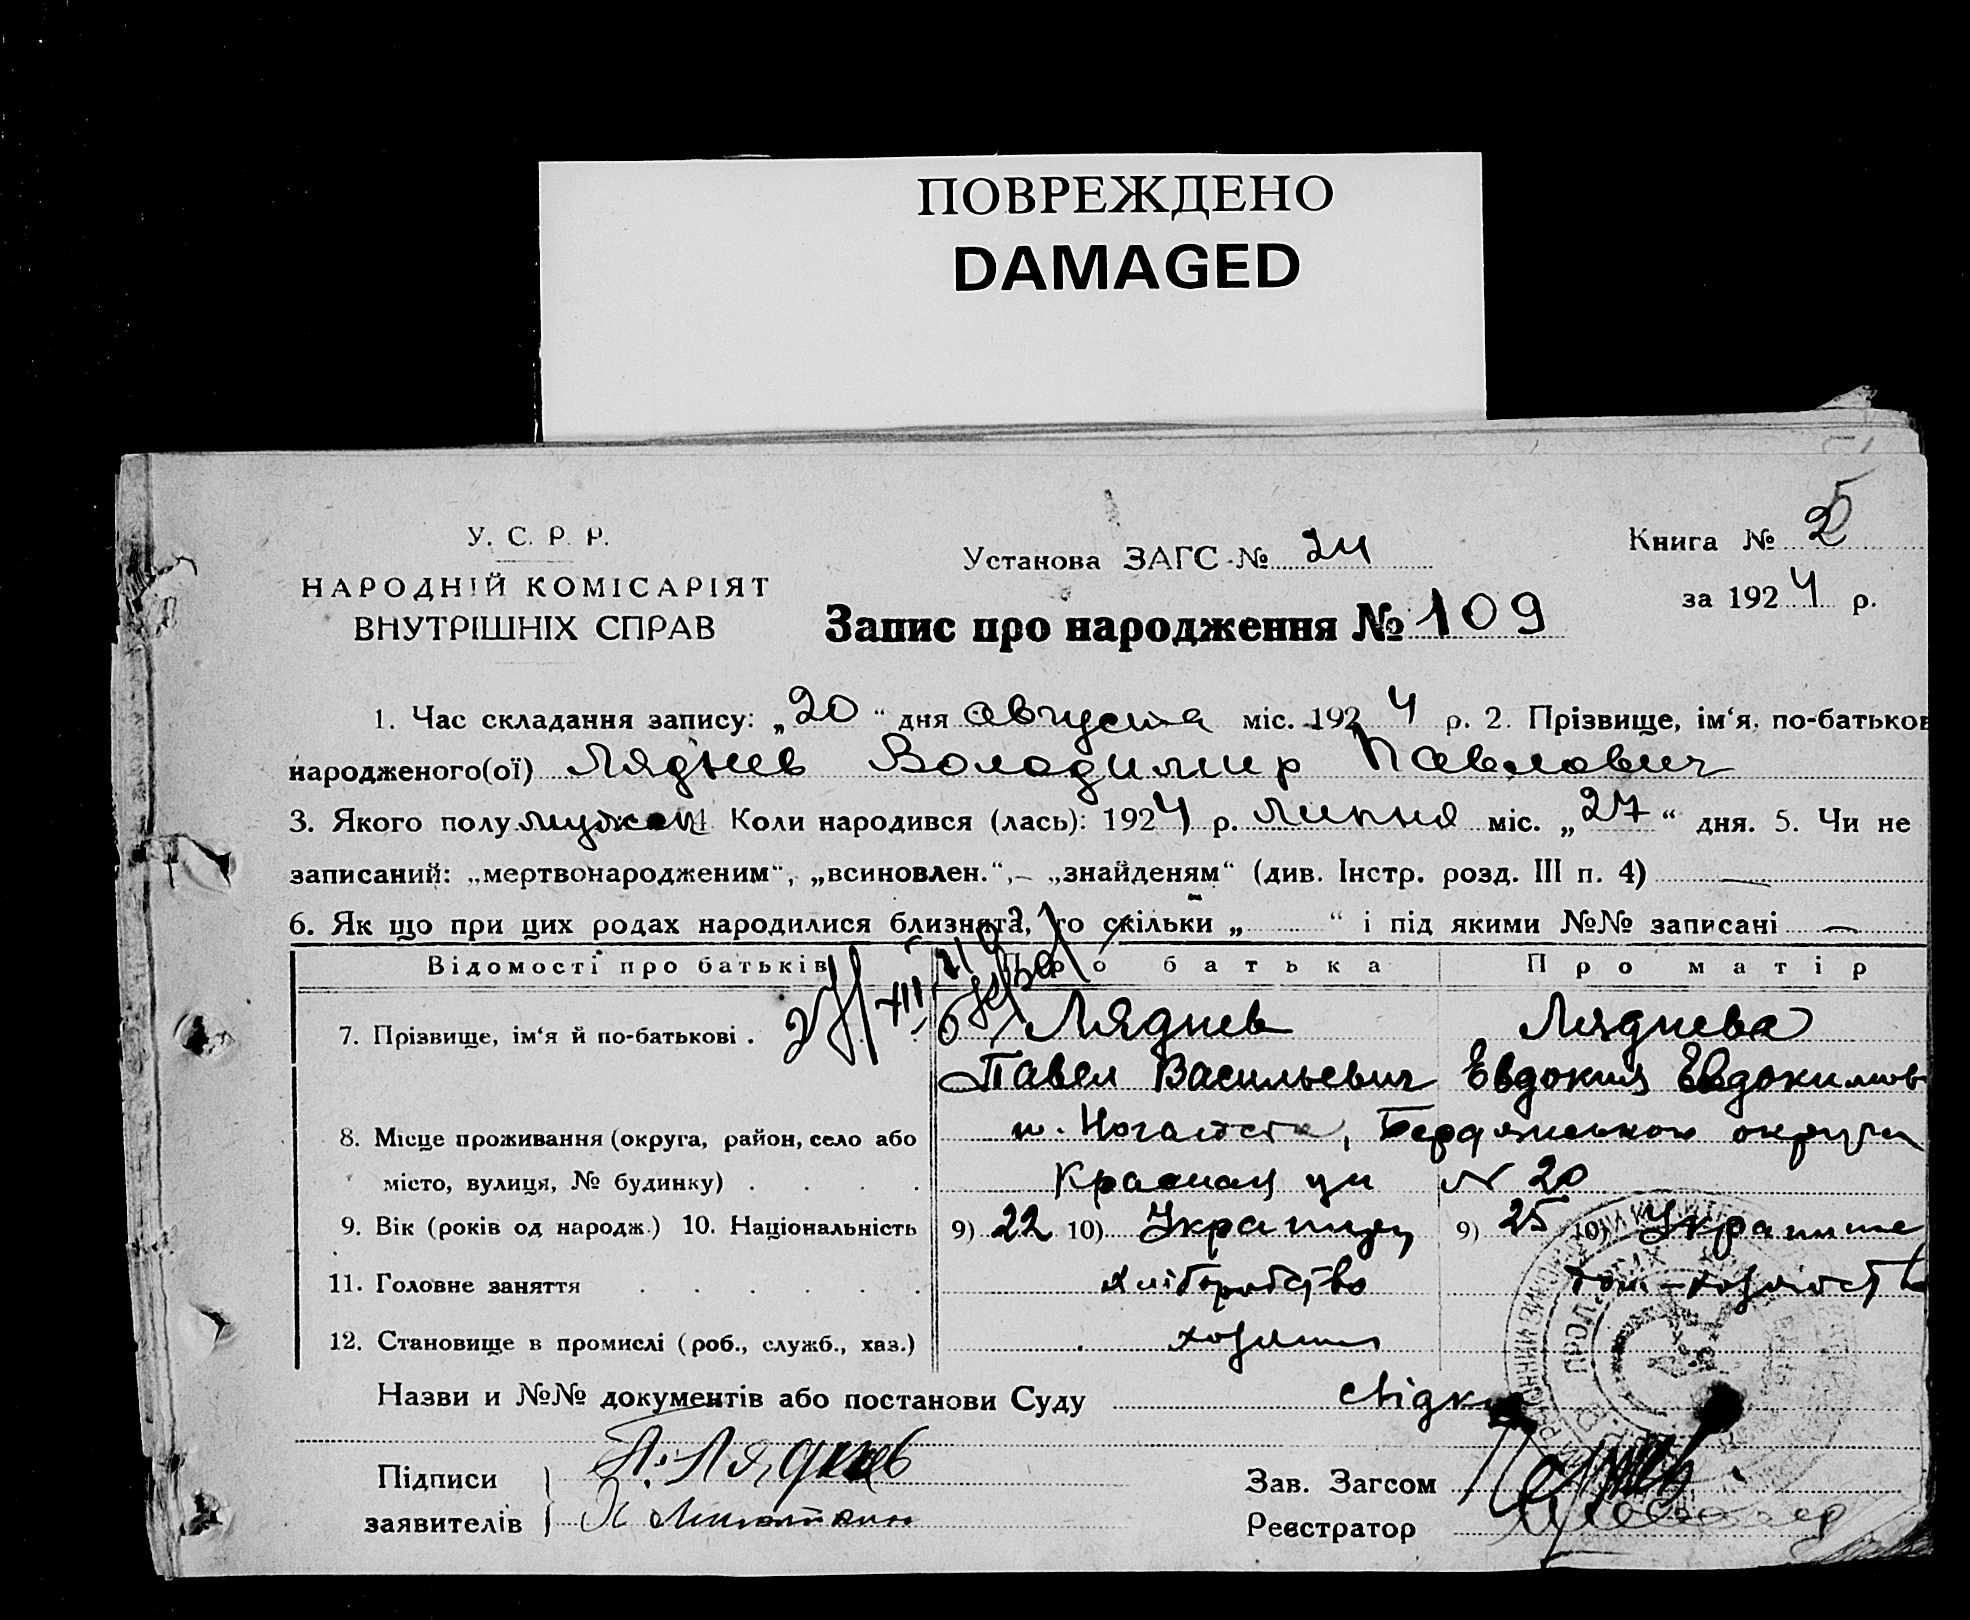 ПОВРЕЖДЕНО
DAMAGED
У. С. Р. Р.
НАРОДНІЙ КОМІСАРІЯТ
ВНУТРІШНІХ СПРАВ
Установа ЗАГС № 24
Книга № 2
за 1924 р.
Запис про народження № 109
1. Час складання запису: „20“ дня августа міс. 1924 р. 2. Прізвище, ім‘я, по-батьков
народженого(ої) Ляднев Володимир Павлович
3. Якого полу мужск 4. Коли народився (лась): 1924 р. липня міс. „27“ дня. 5. Чи не
записаний: „мертвонародженим“, „всиновлен.“, „знайденям“ (див. Інстр. розд. III п. 4) —
6. Як що при цих родах народилися близнята, то скільки „ “ і під якими №№ записані —
Відомості про батьків Про батька Про матір
7. Прізвище, ім‘я й по-батькові . Ляднев Ляднева
Павел Васильевич Евдокия Евдокимов
8. Місце проживання (округа, район, село або м. Ногайськ, Бердянської округи
місто, вулиця, № будинку) . . . . Красная ул № 20
9. Вік (років од народж.) 10. Національність 9) 22 10) Українец 9) 25 10) Украине
11. Головне заняття . . . . . . хліборобство дом-хозяйств
12. Становище в промислі (роб., служб., хаз.) хозяин
Назви и №№ документів або постанови Суду свідки
Підписи П. Ляднев Зав. Загсом
заявителів Реєстратор